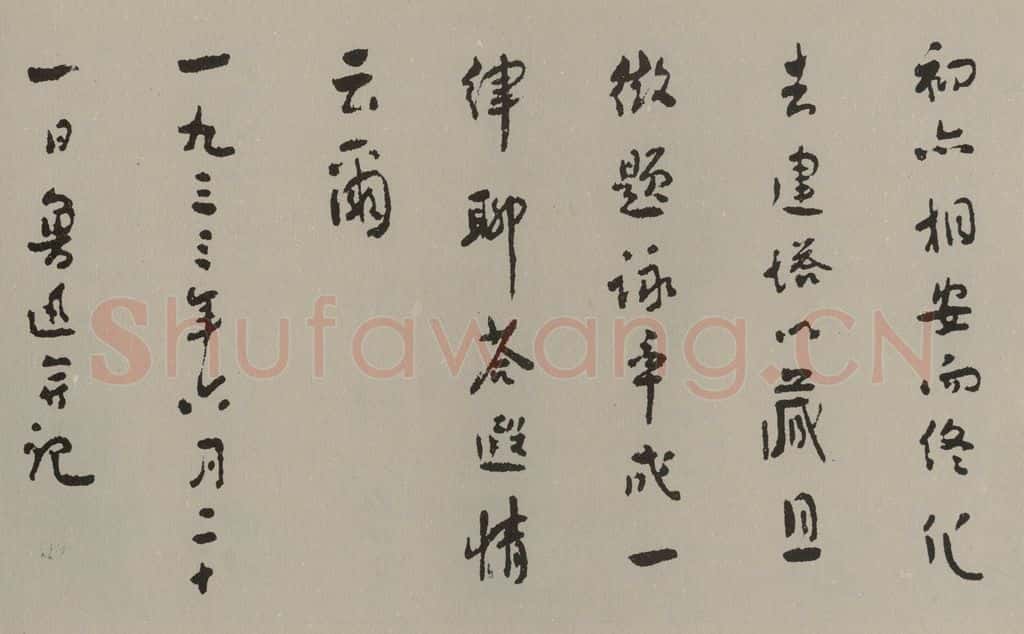 初亦相安而终化
去建塔以藏且
徵题詠率成一
律聊答遐情
云爾
一九三三年六月二十
一日魯迅并记
Shufawang.CN